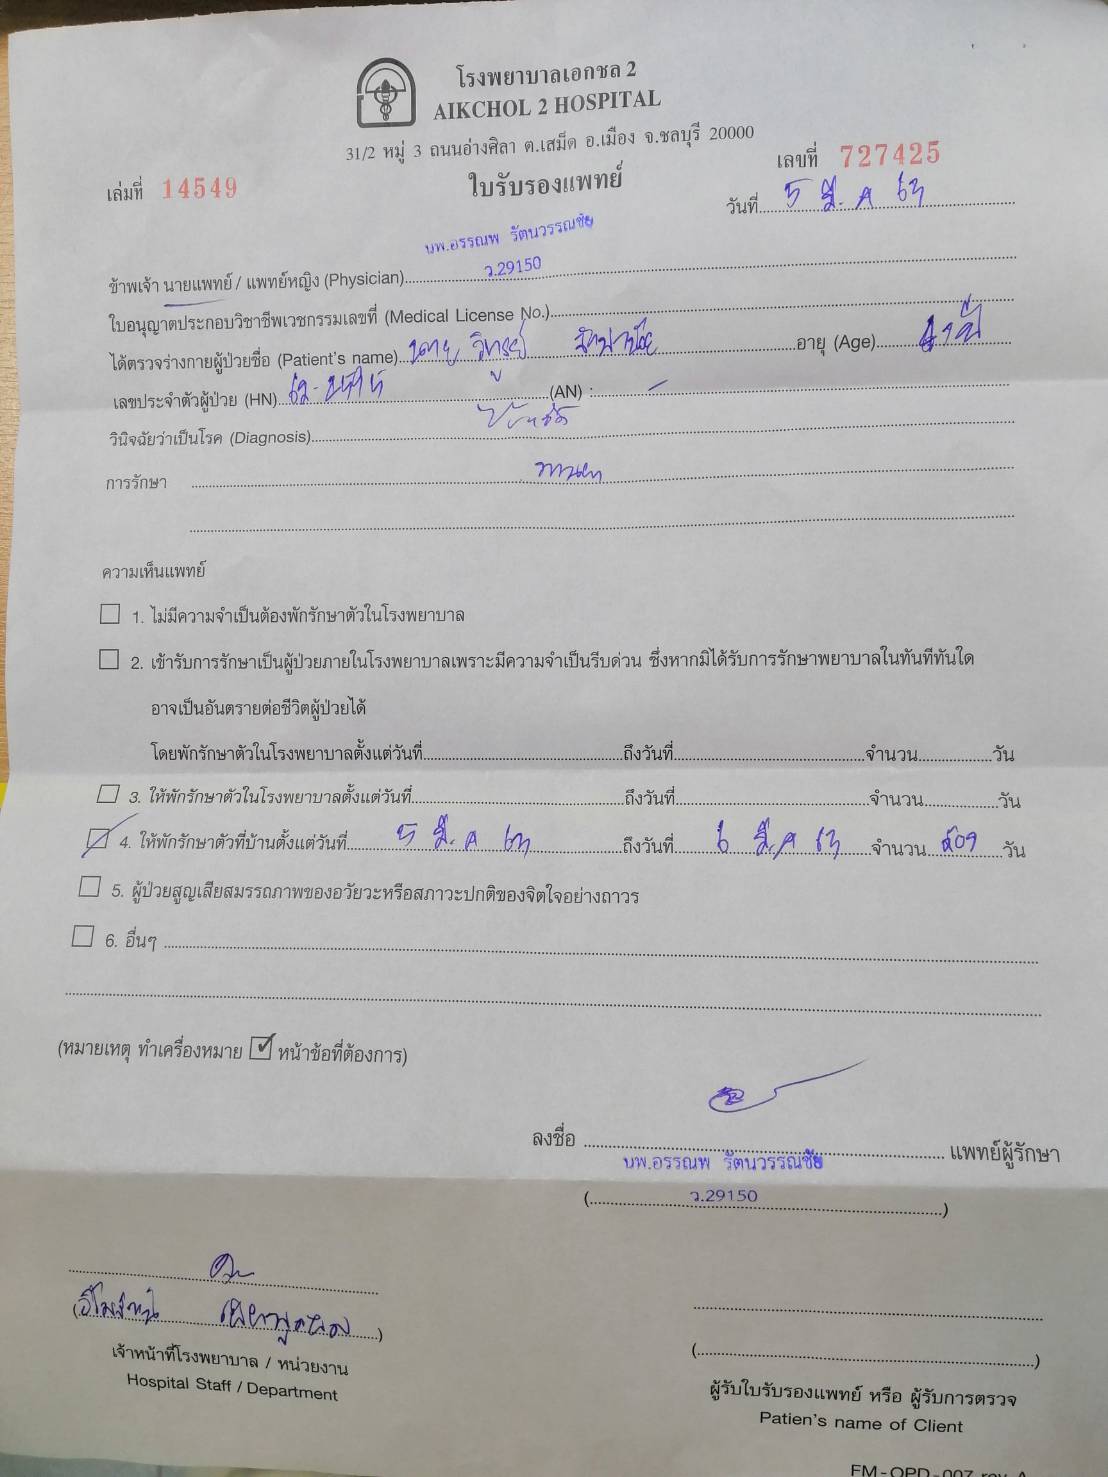 โรงพยาบาลเอกชล 2
AIKCHOL 2 HOSPITAL
31/2 หมู่ 3 ถนนอ่างศิลา ต.เสม็ด อ.เมือง จ.ชลบุรี 20000
เล่มที่ 14549
เลขที่ 727425
ใบรับรองแพทย์
วันที่ 5 มี.ค 63
นพ.อรรณพ รัตนวรรณชัย
ว.29150
ข้าพเจ้า นายแพทย์ / แพทย์หญิง (Physician)
ใบอนุญาตประกอบวิชาชีพเวชกรรมเลขที่ (Medical License No.)
ได้ตรวจร่างกายผู้ป่วยชื่อ (Patient's name) นาย อายุ (Age) ปี
เลขประจำตัวผู้ป่วย (HN) (AN) : -
วินิจฉัยว่าเป็นโรค (Diagnosis) ไข้หวัด
การรักษา ทานยา
ความเห็นแพทย์
1. ไม่มีความจำเป็นต้องพักรักษาตัวในโรงพยาบาล
2. เข้ารับการรักษาเป็นผู้ป่วยภายในโรงพยาบาลเพราะมีความจำเป็นรีบด่วน ซึ่งหากมิได้รับการรักษาพยาบาลในทันทีทันใด
อาจเป็นอันตรายต่อชีวิตผู้ป่วยได้
โดยพักรักษาตัวในโรงพยาบาลตั้งแต่วันที่ ถึงวันที่ จำนวน วัน
3. ให้พักรักษาตัวในโรงพยาบาลตั้งแต่วันที่ ถึงวันที่ จำนวน วัน
4. ให้พักรักษาตัวที่บ้านตั้งแต่วันที่ 5 มี.ค 63 ถึงวันที่ 6 มี.ค 63 จำนวน สอง วัน
5. ผู้ป่วยสูญเสียสมรรถภาพของอวัยวะหรือสภาวะปกติของจิตใจอย่างถาวร
6. อื่นๆ
(หมายเหตุ ทำเครื่องหมาย ☑ หน้าข้อที่ต้องการ)
ลงชื่อ แพทย์ผู้รักษา
นพ.อรรณพ รัตนวรรณชัย
( ว.29150 )
เจ้าหน้าที่โรงพยาบาล / หน่วยงาน
Hospital Staff / Department
ผู้รับใบรับรองแพทย์ หรือ ผู้รับการตรวจ
Patien's name of Client
FM-OPD-007 rev A